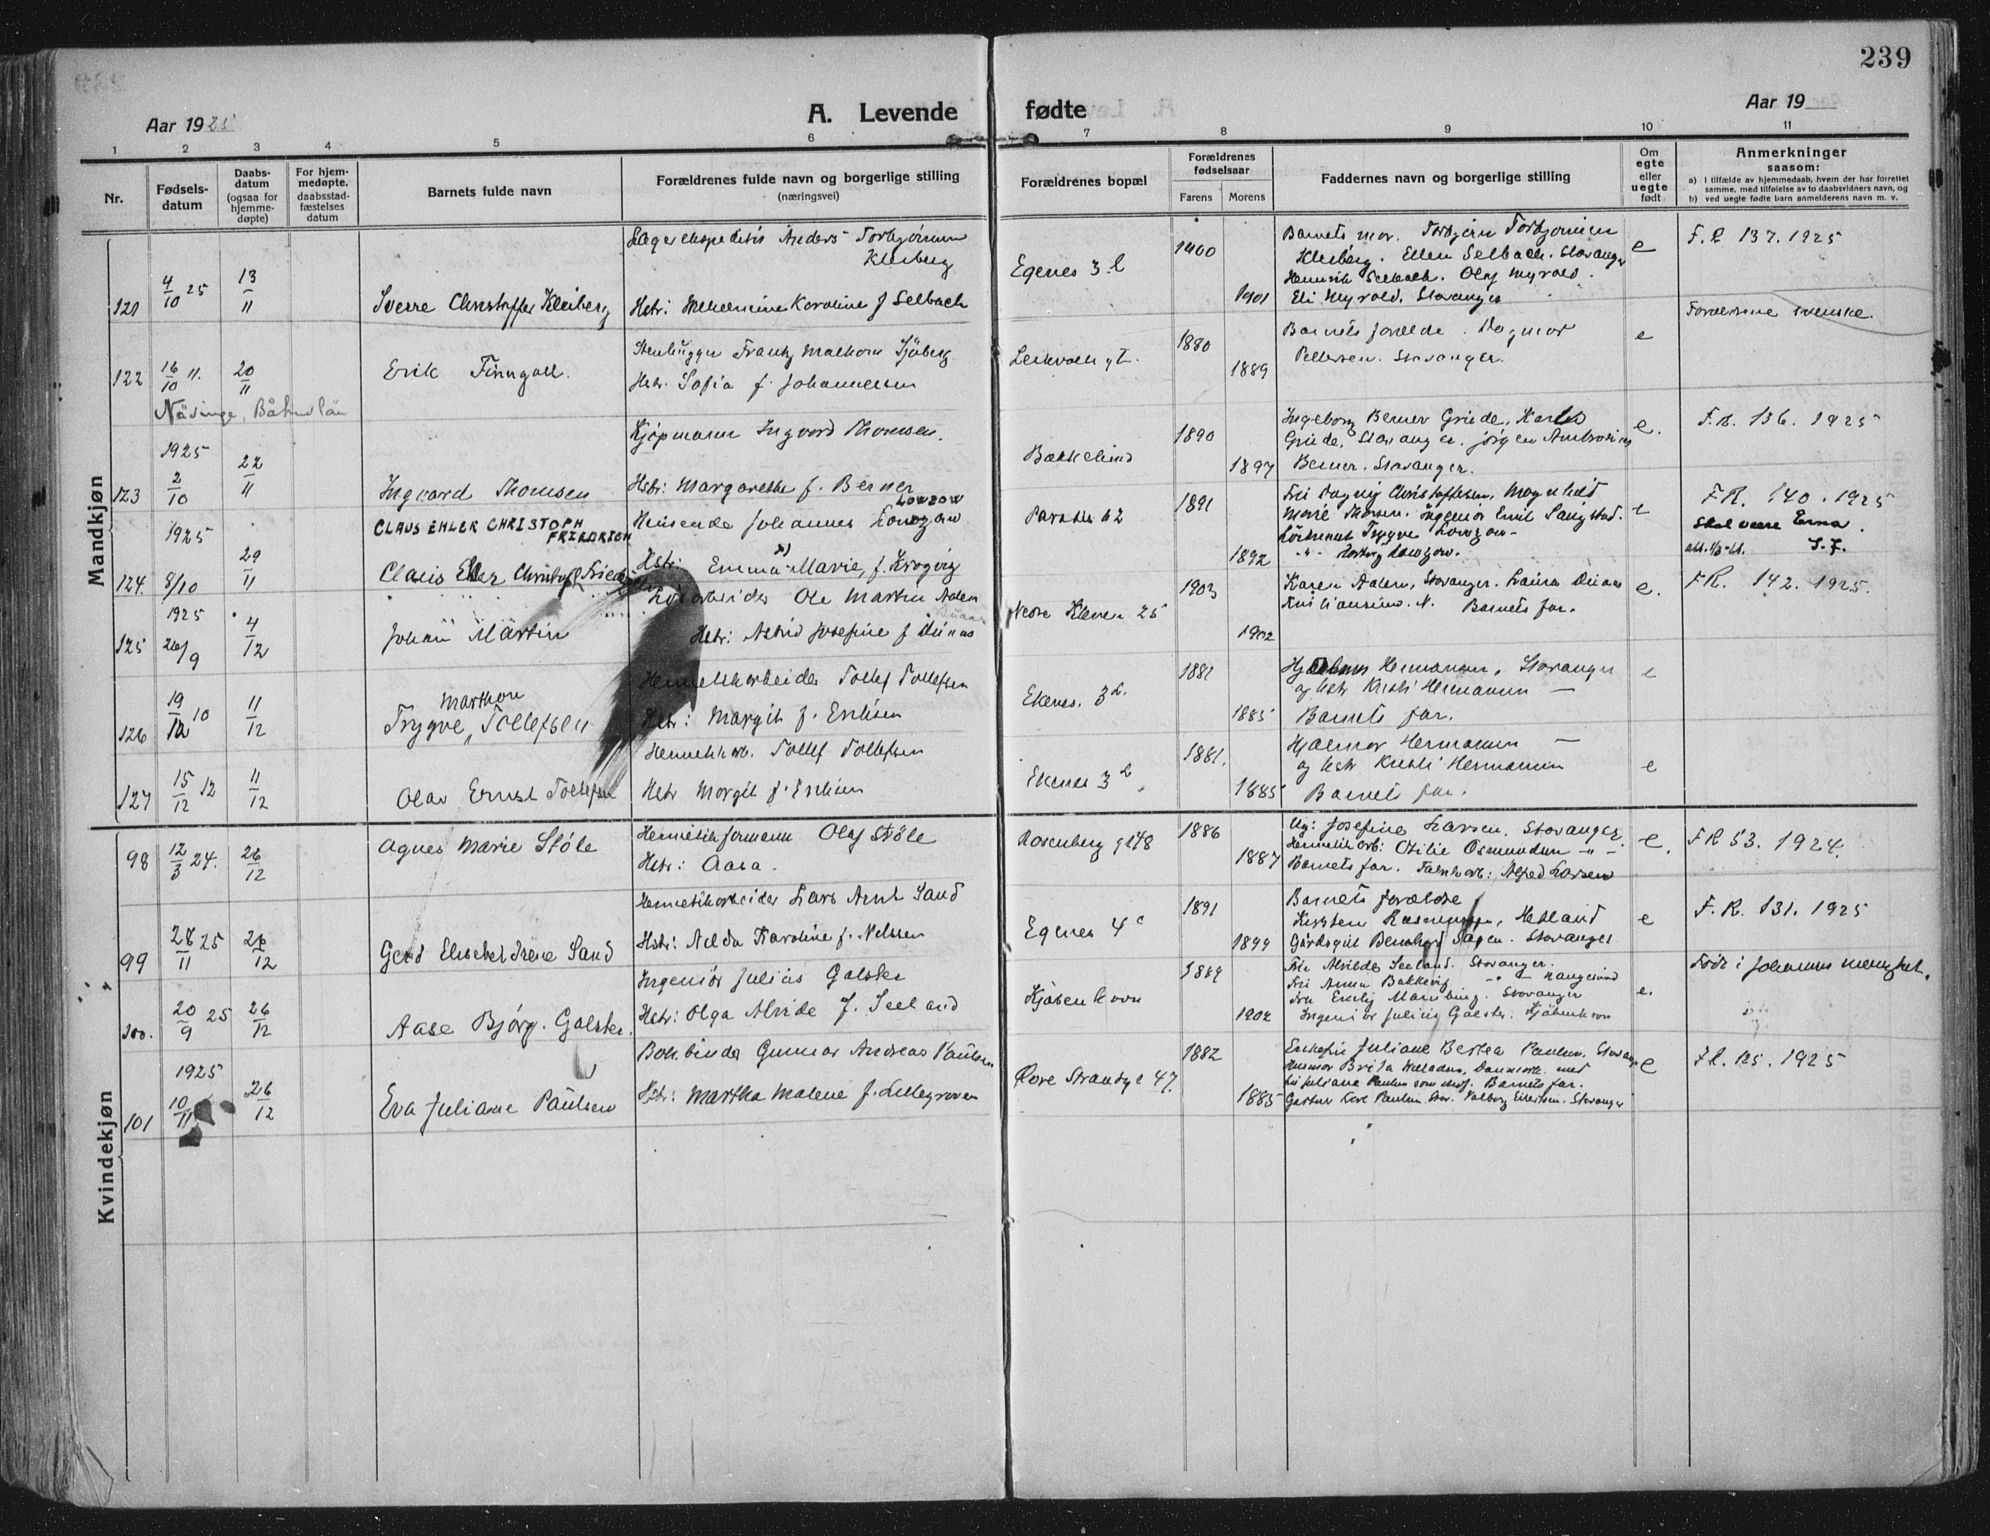 239
Aar 1925
A. Levende
fødte
Aar 19
1 2 3 4 5 6 7 8 9 10 11
Nr.
Fødsels-
datum
Daabs-
datum
(ogsaa for
hjemme-
døpte)
For hjem-
medøpte.
daabsstad-
fæstelses
datum
Barnets fulde navn
Forældrenes fulde navn og borgerlige stilling
(næringsvei)
Forældrenes bopæl
Forældrenes
fødselsaar
Farens Morens
Faddernes navn og borgerlige stilling
Om
egte
eller
uegte
født
Anmerkninger
saasom:
a) I tilfælde av hjemmedaab, hvem der har forrettet
samme, med tilføielse av to daabsvidners navn, og
b) ved uegte fødte barn anmelderens navn m. v.
Mandkjøn
121 4/10 25 13/11
Sverre Christoffer Kleiberg
Lagerekspeditør Anders Torbjørnsen
Kleiberg
Hstr: Wilhelmine Karoline f Selbach
Egenes 3
1900
1901
Barnets mor. Torbjørn Torbjørnsen
Kleiberg. Ellen Selbach. Stavanger
Henrik Selbach. Olaf Myrold.
Eli Myrold, Stavanger
e
F.R 137. 1925
122 16/10 20/11
Näsinge, Båhuslän
Erik Finngall.
Stenhugger Frantz Sjöberg
Hstr. Sofia f. Johannessen
1880
1889
Barnets forældre. Dagmar
Pettersen. Stavanger.
e
Forældrene svenske.
123 1925 2/10 22/11
Ingvard Thomsen
Kjøpmann Ingvard Thomsen.
Hstr: Margarethe f. Berner
Bakkelund
1890
1897
Ingeborg Berner Griede, Karl
Griede, Stavanger. Jörgen Ambrosius
Berner. Stavanger.
e.
F.R. 136. 1925
124. 1925 8/10 29/11
CLAUS EHLER CHRISTOPH
FRIEDRICH
Claus Ehler Christoph Friedrich
LOWZOW
Johannes Lowzow
Hstr: Emma Marie, f. Krogvig
Paradis 62
1891
1892
Frk Dagny Christoffersen, Magnhild
Marie Thorsen. Ingeniør Emil Sangstad.
Løitenant Trygve Lowzow
Lowzow.
e
F.R. 140. 1925
Skal være Erna.
S.F.
125 1925 26/9 4/12
Johan Martin
Løsarbeider Ole Martin Aalen
Hstr: Astrid Josefine f Duaas
Nedre Kleven 25
1903
1902
Karen Aalen, Stavanger. Laura Duaas
Kristiansund. N. Barnets far.
e.
FR. 142. 1925.
126 19/12 10 11/12
Marthon
Trygve Tollefsen
Hermetikarbeider Tollef Tollefsen
Hstr: Margit f. Eriksen
Ekenes. 3
1881
1885
Hjalmar Hermansen, Stavanger
og hstr Kristi Hermansen —
Barnets far.
e
127 15/12 12 11/12
Olav Ernst Tollefsen
Hermetikarb. Tollef Tollefsen
Hstr Margit f. Eriksen
Ekenes 3
1881.
1885
Hjalmar Hermansen —
og hstr Kristi Hermansen
Barnets far.
e
Kvindekjøn
98 12/3 24. 26/12
Agnes Marie Støle
Hermetikformann Olaf Støle
Hstr: Aasa.
Rosenberg gt 48
1886
1887
Josefine Larsen. Stavanger
Hermetikarb: Otilie Osmundsen
Barnets far. Alfred Larsen
e.
FR 53. 1924.
99 28/11 25 26/12
Gerd Elisabet Irene Sand
Hermetikarbeider Lars Arnt Sand
Hstr: Nelda Karoline f. Nelssen
Egenes 4 c
1891
1899
Barnets forældre
Kirsten Rasmussen, Hetland
Gårdsgut Bernhard Sagen. Stavanger
e
F.R. 131. 1925
100. 20/9 25 26/12
Aase Bjørg. Galster.
Ingeniør Julius Galster
Hstr: Olga Alvide f. Seeland
Kjøbenhavn
1889
1902
Fru Alvilde Seeland. Stavanger.
Fru Anna Bakkevig Haugesund
Fru Emily Stavanger
Ingeniør Julius Galster. Kjøbenhavn
e.
Født i Johannes menighet.
101 1925 10/11 26/12
Eva Juliane Paulsen
Bokbinder Gunnar Andreas Paulsen
Hstr: Martha Malene f. Lillegraven
Øvre Strandgt 47.
1882
1885
Enkefru Juliane Bertea Paulsen. Stavanger
Brita Danmark. med
frk Juliane Paulsen som Barnets far.
Gartner Kåre Paulsen Valborg Eilertsen. Stavanger
e
F.R. 125. 1925